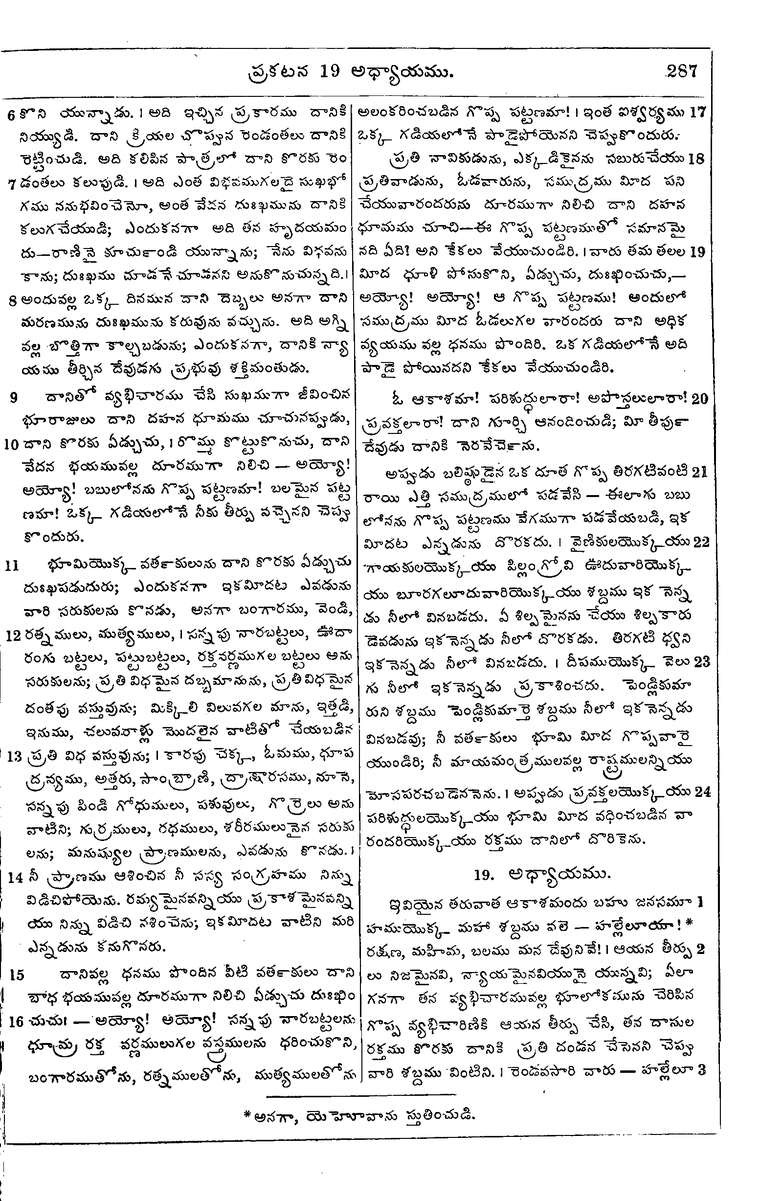 ప్రకటన 19 అధ్యాయము. 287
6 కొని యున్నాడు. । అది ఇచ్చిన ప్రకారము దానికి
నియ్యుడి. దాని క్రియల చొప్పున రెండంతలు దానికి
రెట్టించుడి. అది కలిపిన పాత్రలో దాని కొరకు రెం
7 డంతలు కలుపుడి. । అది ఎంత విభవముగలదై సుఖభో
గము ననుభవించెనో, అంత వేదన దుఃఖమును దానికి
కలుగచేయుడి; ఎందుకనగా అది తన హృదయమం
దు—రాణినై కూచుండి యున్నాను; నేను విధవను
కాను; దుఃఖము చూడనే చూడనని అనుకొనుచున్నది. ।
8 అందువల్ల ఒక్క దినమున దాని దెబ్బలు అనగా దాని
మరణమును దుఃఖమును కరువును వచ్చును. అది అగ్ని
వల్ల బొత్తిగా కాల్చబడును; ఎందుకనగా, దానికి న్యా
యము తీర్చిన దేవుడగు ప్రభువు శక్తిమంతుడు.
9 దానితో వ్యభిచారము చేసి సుఖముగా జీవించిన
భూరాజులు దాని దహన ధూమము చూచునప్పుడు,
10 దాని కొరకు ఏడ్చుచు, । రొమ్ము కొట్టుకొనుచు, దాని
వేదన భయమువల్ల దూరముగా నిలిచి — అయ్యో!
అయ్యో! బబులోనను గొప్ప పట్టణమా! బలమైన పట్ట
ణమా! ఒక్క గడియలోనే నీకు తీర్పు వచ్చెనని చెప్పు
కొందురు.
11 భూమియొక్క వర్తకులును దాని కొరకు ఏడ్చుచు
దుఃఖపడుదురు; ఎందుకనగా ఇకమీదట ఎవడును
వారి సరుకులను కొనడు, అనగా బంగారము, వెండి,
12 రత్నములు, ముత్యములు, । సన్నపు నారబట్టలు, ఊదా
రంగు బట్టలు, పట్టుబట్టలు, రక్తవర్ణముగల బట్టలు అను
సరుకులను; ప్రతి విధమైన దబ్బమానును, ప్రతి విధమైన
దంతపు వస్తువును; మిక్కిలి విలువగల మాను, ఇత్తడి,
ఇనుము, చలువరాళ్లు మొదలైన వాటితో చేయబడిన
13 ప్రతి విధ వస్తువును; । కారపు చెక్క, ఓమము, ధూప
ద్రవ్యము, అత్తరు, సాంబ్రాణి, ద్రాక్షారసము, నూనె,
సన్నపు పిండి గోధుములు, పశువులు, గొర్రెలు అను
వాటిని; గుర్రములు, రథములు, శరీరములునైన సరుకు
లను; మనుష్యుల ప్రాణములను, ఎవడును కొనడు. ।
14 నీ ప్రాణము ఆశించిన నీ సస్య సంగ్రహము నిన్ను
విడిచిపోయెను. రమ్యమైనవన్నియు ప్రకాశమైనవన్ని
యు నిన్ను విడిచి నశించెను; ఇకమీదట వాటిని మరి
ఎన్నడును కనుగొనరు.
15 దానివల్ల ధనము పొందిన వీటి వర్తకులు దాని
బాధ భయమువల్ల దూరముగా నిలిచి ఏడ్చుచు దుఃఖిం
16 చుచు। — అయ్యో! అయ్యో! సన్నపు నారబట్టలను
ధూమ్ర రక్త వర్ణములుగల వస్త్రములను ధరించుకొని,
బంగారముతోను, రత్నములతోను, ముత్యములతోను
అలంకరించబడిన గొప్ప పట్టణమా! । ఇంత ఐశ్వర్యము 17
ఒక్క గడియలోనే పాడైపోయెనని చెప్పుకొందురు.
ప్రతి నావికుడును, ఎక్కడికైనను సబురుచేయు 18
ప్రతివాడును, ఓడవారును, సముద్రము మీద పని
చేయువారందరును దూరముగా నిలిచి దాని దహన
ధూమము చూచి—ఈ గొప్ప పట్టణముతో సమానమై
నది ఏది? అని కేకలు వేయుచుండిరి. । వారు తమ తలల 19
మీద ధూళి పోసుకొని, ఏడ్చుచు, దుఃఖించుచు,—
అయ్యో! అయ్యో! ఆ గొప్ప పట్టణము! అందులో
సముద్రము మీద ఓడలుగల వారందరు దాని అధిక
వ్యయము వల్ల ధనము పొందిరి. ఒక గడియలోనే అది
పాడై పోయినదని కేకలు వేయుచుండిరి.
ఓ ఆకాశమా! పరిశుద్ధులారా! అపొస్తలులారా! 20
ప్రవక్తలారా! దాని గూర్చి ఆనందించుడి; మీ తీర్పు
దేవుడు దానికి నెరవేర్చెను.
అప్పుడు బలిష్ఠుడైన ఒక దూత గొప్ప తిరగటివంటి 21
రాయి ఎత్తి సముద్రములో పడవేసి — ఈలాగు బబు
లోనను గొప్ప పట్టణము వేగముగా పడవేయబడి, ఇక
మీదట ఎన్నడును దొరకదు. । వైణికులయొక్కయు 22
గాయకులయొక్కయు పిల్లంగ్రోవి ఊదువారియొక్క
యు బూరగలూదువారియొక్కయు శబ్దము ఇక నెన్న
డు నీలో వినబడదు. ఏ శిల్పమైనను చేయు శిల్పకారు
డెవడును ఇకనెన్నడు నీలో దొరకడు. తిరగటి ధ్వని
ఇకనెన్నడు నీలో వినబడదు. । దీపముయొక్క వెలు 23
గు నీలో ఇకనెన్నడు ప్రకాశించదు. పెండ్లికుమా
రుని శబ్దము పెండ్లికుమార్తె శబ్దము నీలో ఇకనెన్నడు
వినబడవు; నీ వర్తకులు భూమి మీద గొప్పవారై
యుండిరి; నీ మాయమంత్రములవల్ల రాష్ట్రములన్నియు
మోసపరచబడెననెను. । అప్పుడు ప్రవక్తలయొక్కయు 24
పరిశుద్ధులయొక్కయు భూమి మీద వధించబడిన వా
రందరియొక్కయు రక్తము దానిలో దొరికెను.
19. అధ్యాయము.
ఇవియైన తరువాత ఆకాశమందు బహు జనసమూ 1
హముయొక్క మహా శబ్దము వలె — హల్లేలూయా!*
రక్షణ, మహిమ, బలము మన దేవునివే! । ఆయన తీర్పు 2
లు నిజమైనవి, న్యాయమైనవియునై యున్నవి; ఏలా
గనగా తన వ్యభిచారమువల్ల భూలోకమును చెరిపిన
గొప్ప వ్యభిచారిణికి ఆయన తీర్పు చేసి, తన దాసుల
రక్తము కొరకు దానికి ప్రతి దండన చేసెనని చెప్పు
వారి శబ్దము వింటిని. । రెండవసారి వారు — హల్లేలూ 3
*అనగా, యెహోవాను స్తుతించుడి.